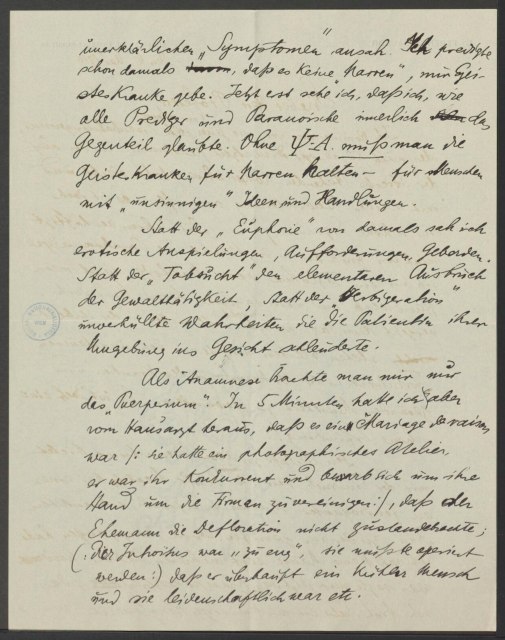 unerklärlichen „Symptomen" ansah. Ich predigte
schon damals, daß es keine „Narren", nur Gei-
steskranke gebe. Jetzt erst sehe ich, daß ich, wie
alle Prediger und Paranoische innerlich das
Gegenteil glaubte. Ohne Ψ-A. muß man die
Geisteskranken für Narren halten – für Menschen
mit „unsinnigen" Ideen und Handlungen.
Statt der „Euphorie" von damals sah ich
erotische Anspielungen, Aufforderungen, Geberden.
Statt der „Tobsucht" den elementaren Ausbruch
der Gewalttätigkeit, statt der „Verbigeration"
unverhüllte Wahrheiten die die Patientin ihrer
Umgebung ins Gesicht schleuderte.
Als Anamnese brachte man mir nur
das „Puerperium". In 5 Minuten hatte ich aber
vom Hausarzt heraus, daß es eine Marriage de raison
war /: sie hatte ein photographisches Atelier,
er war ihr Konkurrent und bewarb sich um ihre
Hand um die Firmen zu vereinigen :/, daß der
Ehemann die Defloration nicht zustandebrachte;
(: Der Introitus war „zu eng", sie mußte operiert
werden :) daß er überhaupt ein kühler Mensch
und sie leidenschaftlich war etc.